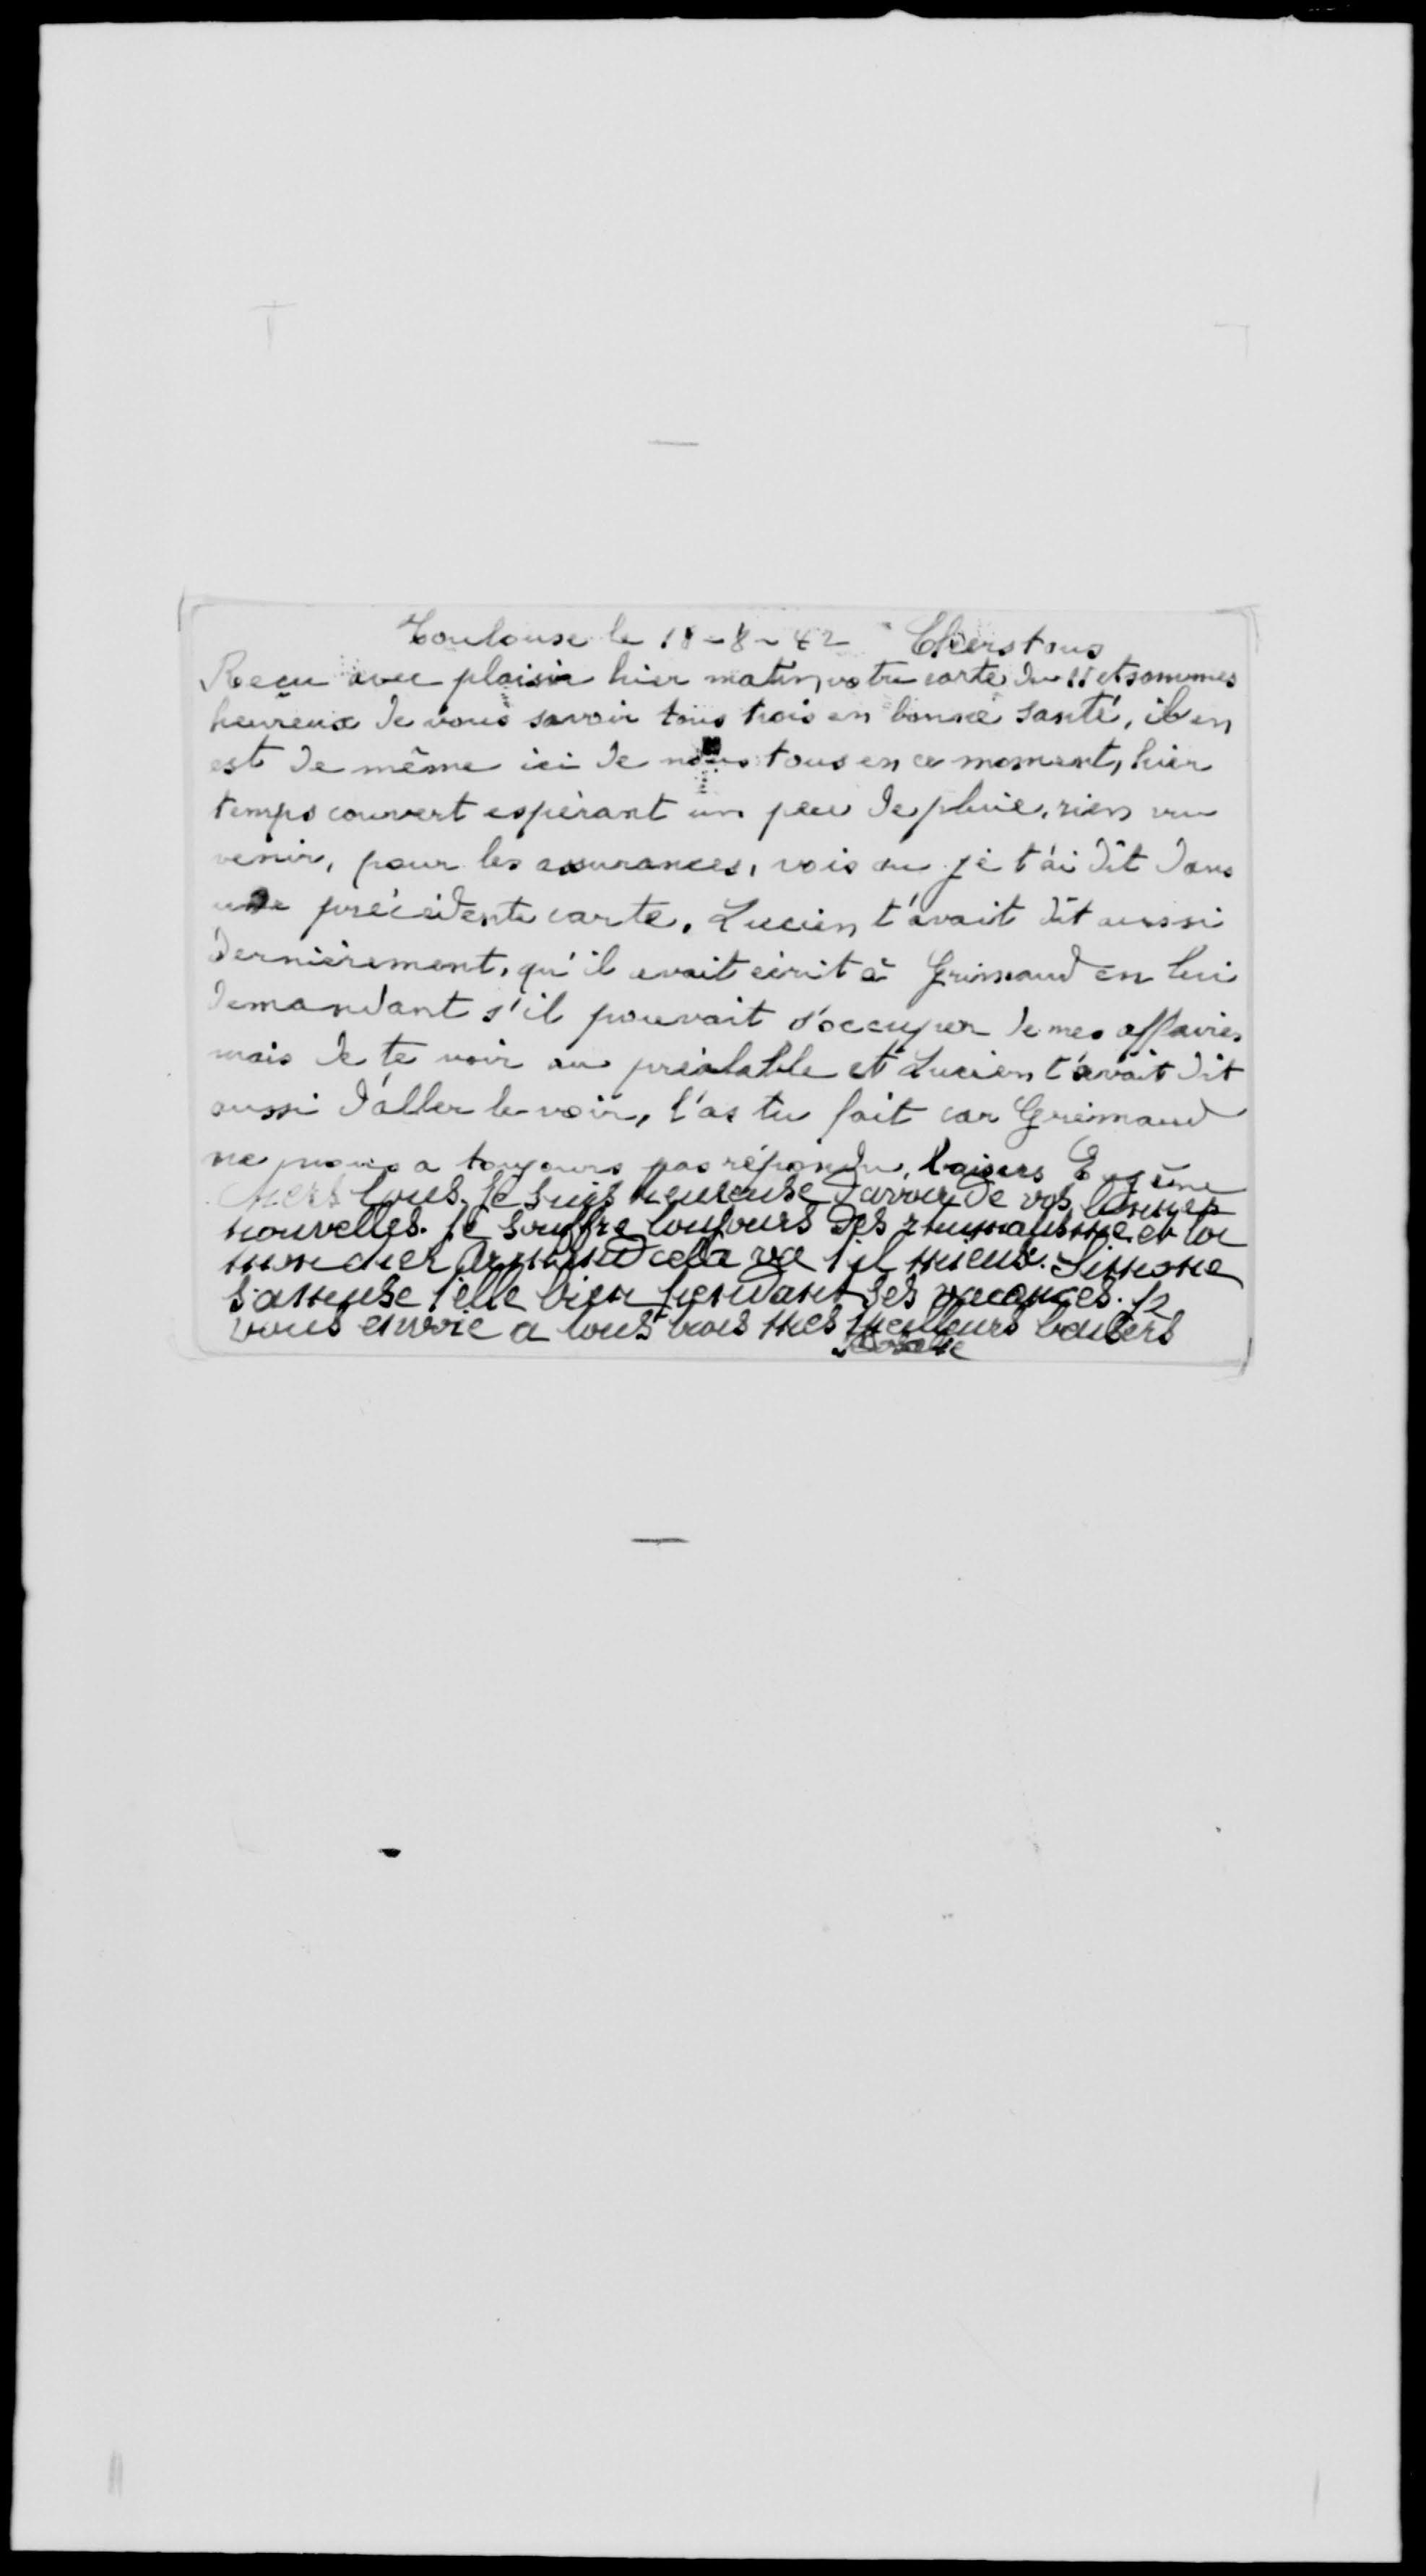 Toulouse le 18-8-42 Chers tous
Reçu avec plaisir hier matin, votre carte du 11 et sommes
heureux de vous savoir tous trois en bonne santé, il en
est de même ici de nous tous en ce moment, hier
temps couvert espérant un peu de pluie, rien vu
venir, pour les assurances, vois au je t'ai dit dans
une précédente carte, Lucien t'avait dit aussi
dernièrement, qu'il avait écrit à Grimaud en lui
demandant s'il pouvait s'occuper de mes affaires
mais de te voir au préalable et Lucien t'avait dit
aussi d'aller le voir, l'as tu fait car Grimaud
ne nous a toujours pas répondu, baisers Eugène
Chers tous. Je suis heureuse d'avoir de vos bonnes
nouvelles. Je souffre toujours des rhumatisme et toi
mon cher Armand cela va t'il mieux. Simone
s'amuse t'elle bien pendant ses vacances. Je
vous envoie a tous trois mes meilleurs baisers